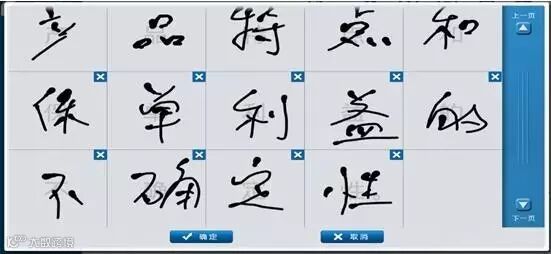 产品特点和
上一页
保单利益的
不确定性
下一页
确定 取消
大数跨境